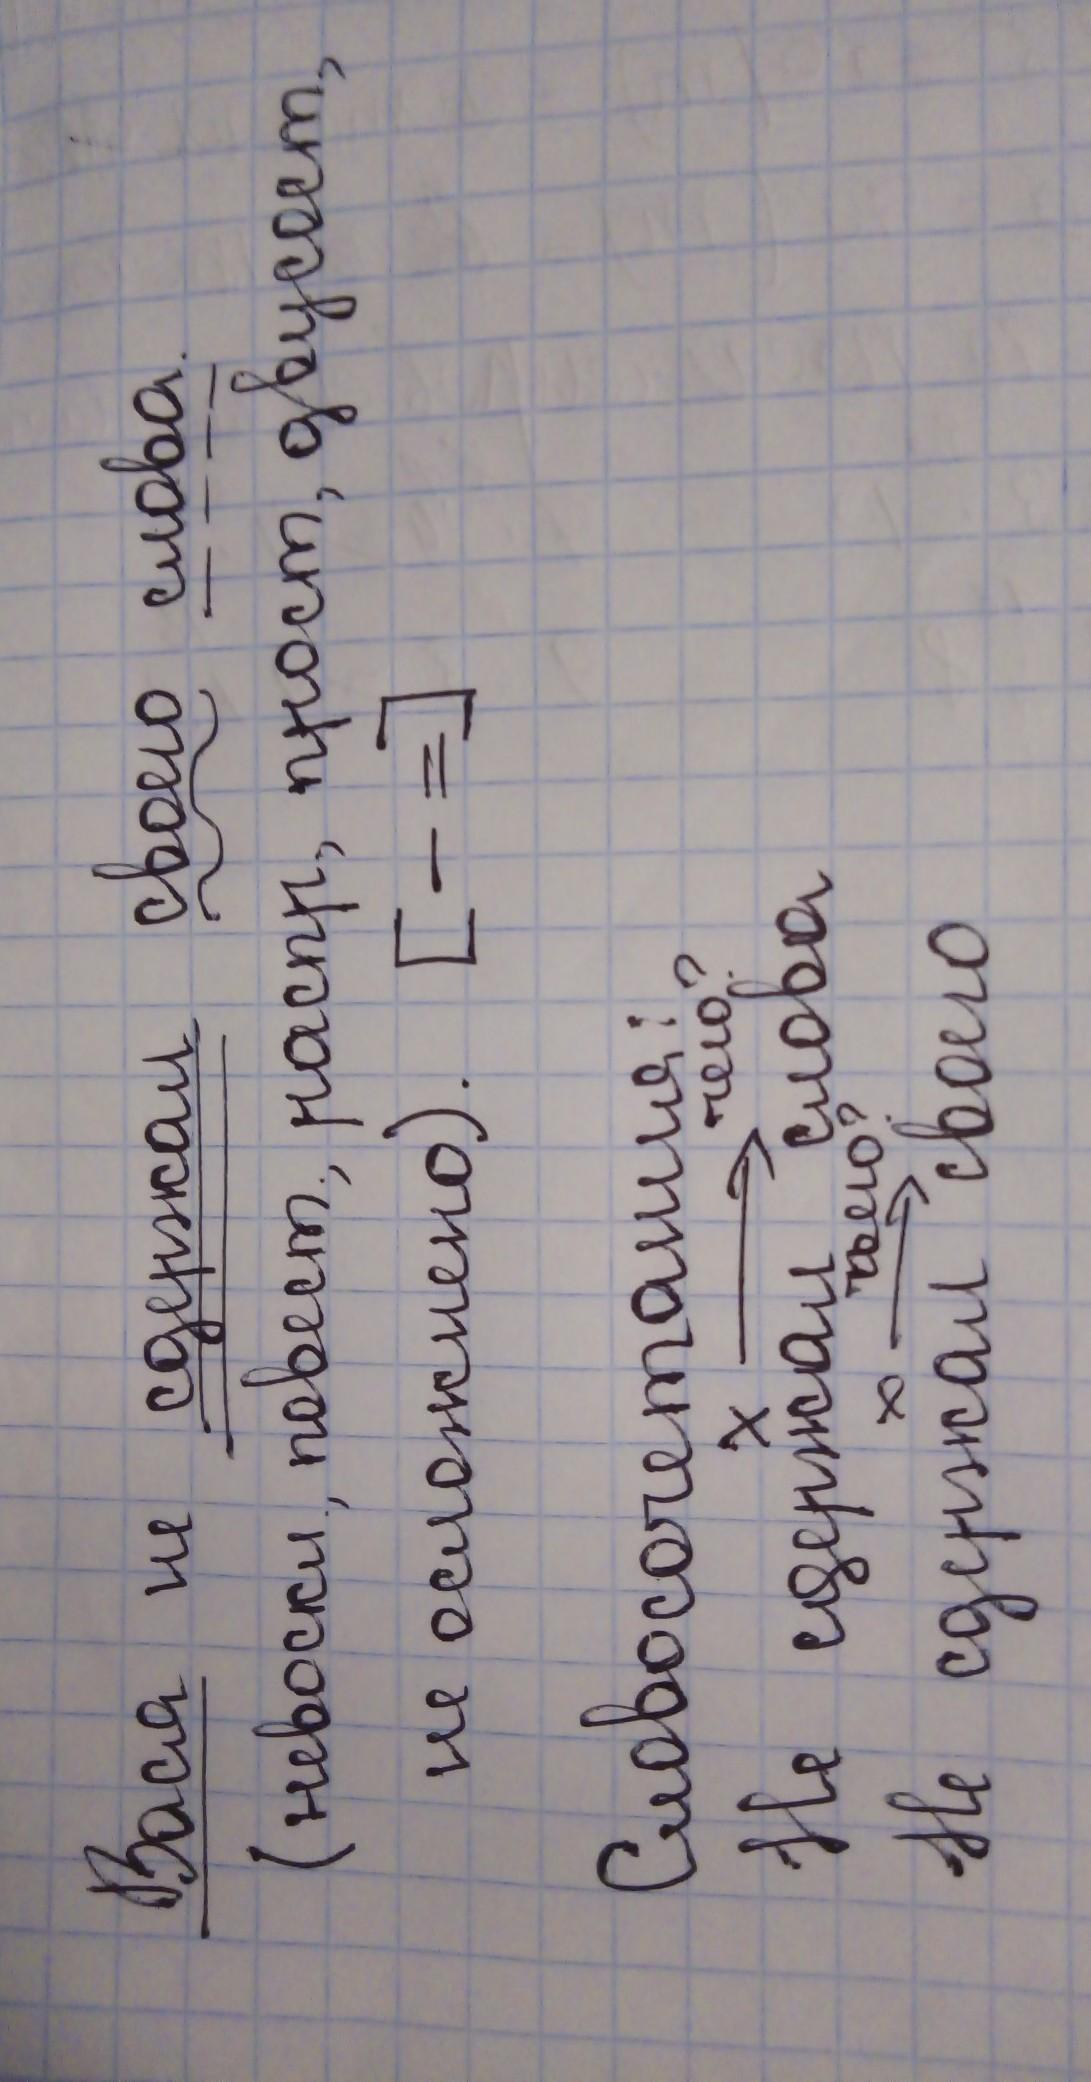 Вася не сдержал своего слова.
(невоскл., повест., распр, прост, двусост,
не осложнено). [ – = ]
Словосочетания:
х чего?
Не сдержал слова
х чьего?
Не сдержал своего